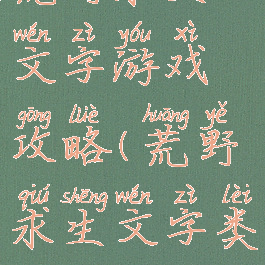 wén zì yóu xì
文字游戏
gōng lüè huāng yě
攻略(荒野
qiú shēng wén zì lèi
求生文字类